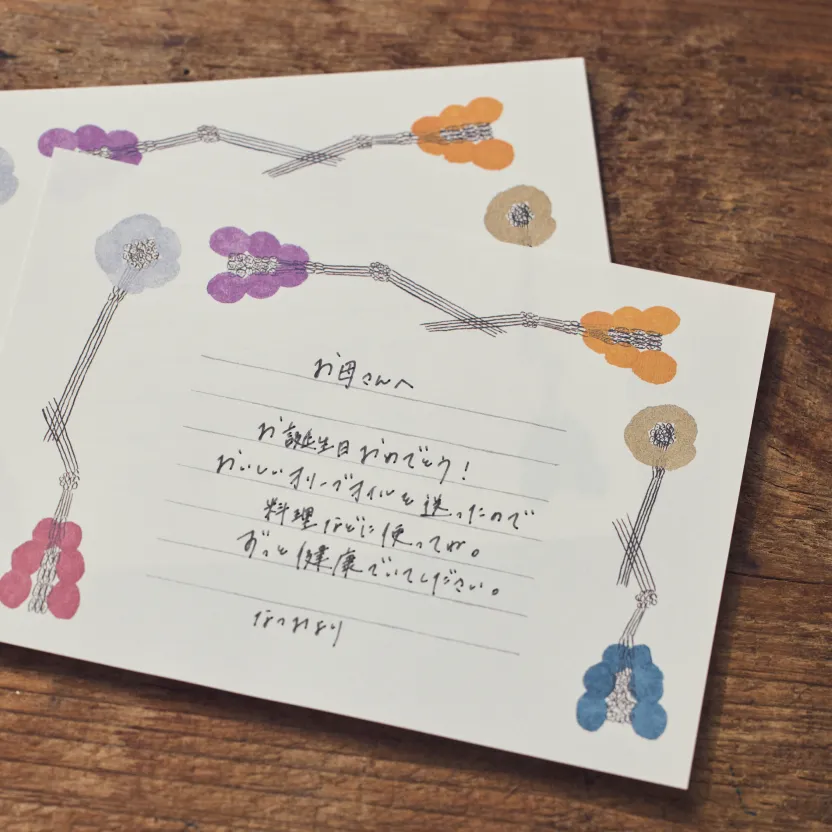 お母さんへ
お誕生日おめでとう！
おいしいオリーブオイルを送ったので
料理などに使ってね。
ずっと健康でいてください。
なつみより